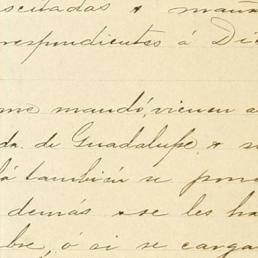 sentadas x mañ
respondientes á Di
me mandó, vienen a
da. de Guadalupe, x s
lá también se pon
demás x se les ha
bre, ó si se carga